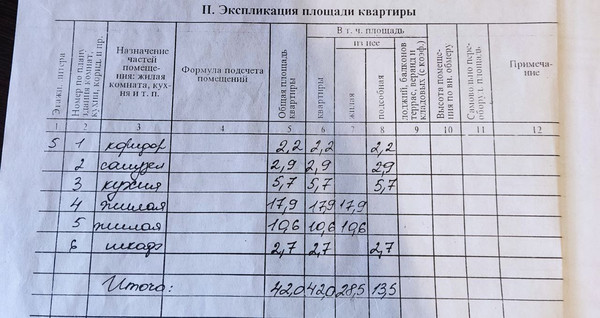 II. Экспликация площади квартиры
Этажн. литера
Номер по плану здания (комнат, кухни, корид. и пр.
Назначение частей помещения: жилая комната, кухня и т. п.
Формула подсчета помещений
Общая площадь квартиры
В т. ч. площадь
квартиры
из нее
жилая
подсобная
лоджий, балконов террас, веранд и кладовых (с коэф.)
Высота помещения по вн. обмеру
Самовольно переоборуд. площадь.
Примечание
1 2 3 4 5 6 7 8 9 10 11 12
5 1 коридор 2,2 2,2 2,2
2 санузел 2,9 2,9 2,9
3 кухня 5,7 5,7 5,7
4 жилая 17,9 17,9 17,9
5 жилая 10,6 10,6 10,6
6 шкаф 2,7 2,7 2,7
Итого: 42,0 42,0 28,5 13,5